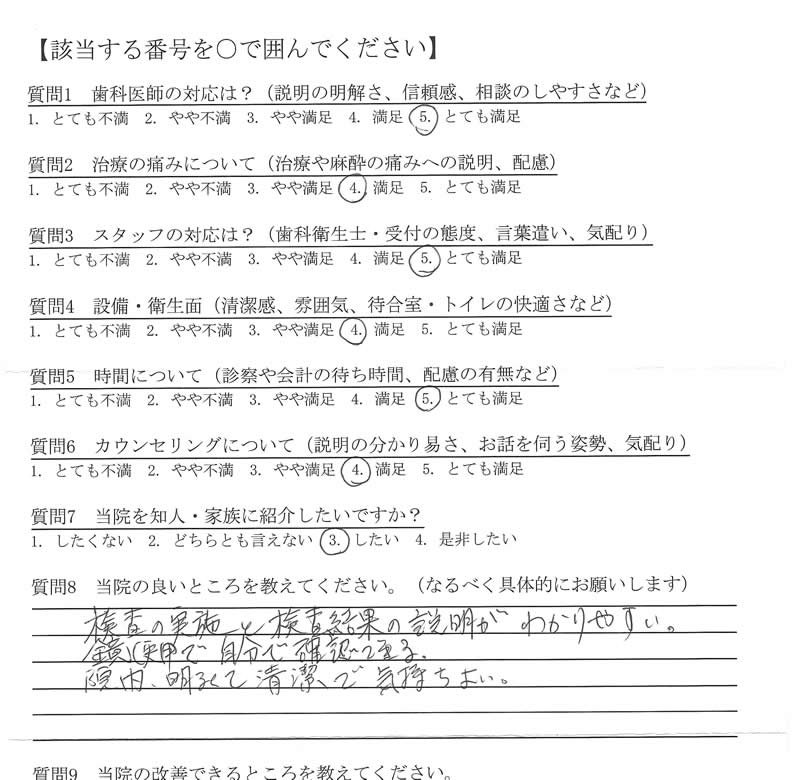 【該当する番号を○で囲んでください】
質問1　歯科医師の対応は？（説明の明解さ、信頼感、相談のしやすさなど）
1. とても不満　2. やや不満　3. やや満足　4. 満足　5. とても満足
質問2　治療の痛みについて（治療や麻酔の痛みへの説明、配慮）
1. とても不満　2. やや不満　3. やや満足　4. 満足　5. とても満足
質問3　スタッフの対応は？（歯科衛生士・受付の態度、言葉遣い、気配り）
1. とても不満　2. やや不満　3. やや満足　4. 満足　5. とても満足
質問4　設備・衛生面（清潔感、雰囲気、待合室・トイレの快適さなど）
1. とても不満　2. やや不満　3. やや満足　4. 満足　5. とても満足
質問5　時間について（診察や会計の待ち時間、配慮の有無など）
1. とても不満　2. やや不満　3. やや満足　4. 満足　5. とても満足
質問6　カウンセリングについて（説明の分かり易さ、お話を伺う姿勢、気配り）
1. とても不満　2. やや不満　3. やや満足　4. 満足　5. とても満足
質問7　当院を知人・家族に紹介したいですか？
1. したくない　2. どちらとも言えない　3. したい　4. 是非したい
質問8　当院の良いところを教えてください。（なるべく具体的にお願いします）
検査の実施と検査結果の説明がわかりやすい。
鏡使用で自分で確認できる。
院内、明るくて清潔で気持ちよい。
質問9　当院の改善できるところを教えてください。